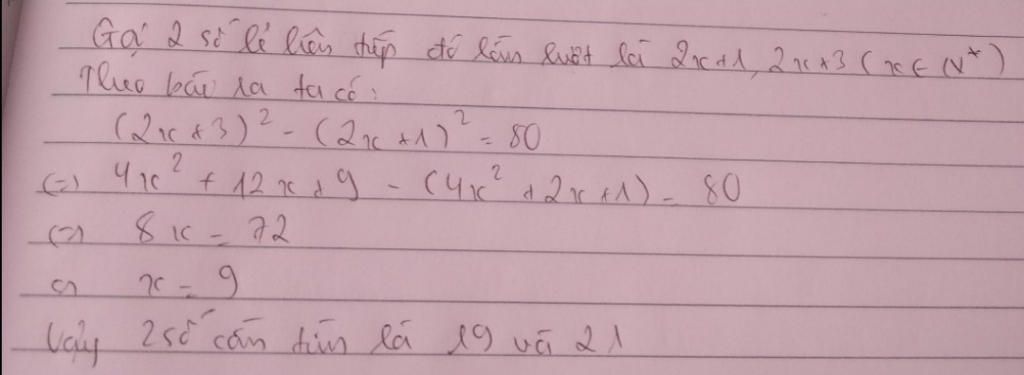 Gọi 2 số lẻ liên tiếp đó lần lượt là 2x+1, 2x+3 (x ∈ N*)
Theo bài ra ta có:
(2x+3)² - (2x+1)² = 80
(=) 4x² + 12x + 9 - (4x² + 2x + 1) = 80
(=) 8x = 72
(=) x = 9
Vậy 2 số cần tìm là 19 và 21